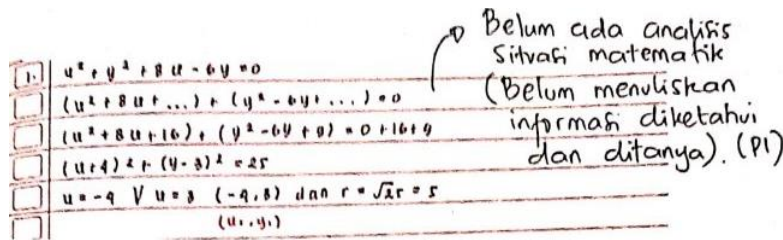 1. u² + y² + 8u - 6y = 0
(u² + 8u + ...) + (y² - 6y + ...) = 0
(u² + 8u + 16) + (y² - 6y + 9) = 0 + 16 + 9
(u+4)² + (y-3)² = 25
u = -4 V u = 3 (-4, 3) dan r = √25 = 5
(u₁, y₁)
Belum ada analisis
Situasi matematik
(Belum menuliskan
informasi diketahui
dan ditanya). (P1)